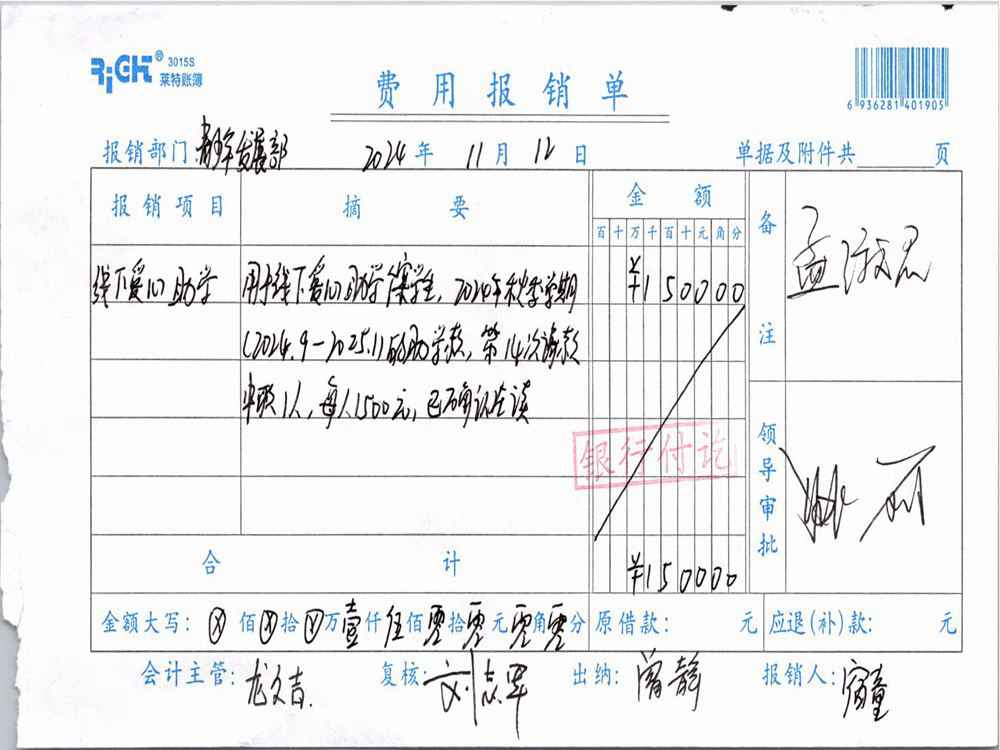 RiGHT® 3015S
莱特账簿
费用报销单
6 936281 401905
报销部门: 青年发展部 2024年 11月 12日 单据及附件共 页
报销项目 摘要 金额 备注
百 十 万 千 百 十 元 角 分
线下爱心助学 用于线下爱心助学 学生，2024年秋季学期 ¥150000
(2024.9-2025.1)的助学款，第14次 款
1人，每人1500元，已确认在读
银行付讫
领导审批
合计 ¥150000
金额大写: ⊗佰⊗拾⊗万壹仟伍佰零拾零元零角零分 原借款: 元 应退(补)款: 元
会计主管: 龙文吉 复核: 刘志军 出纳: 曾静 报销人: